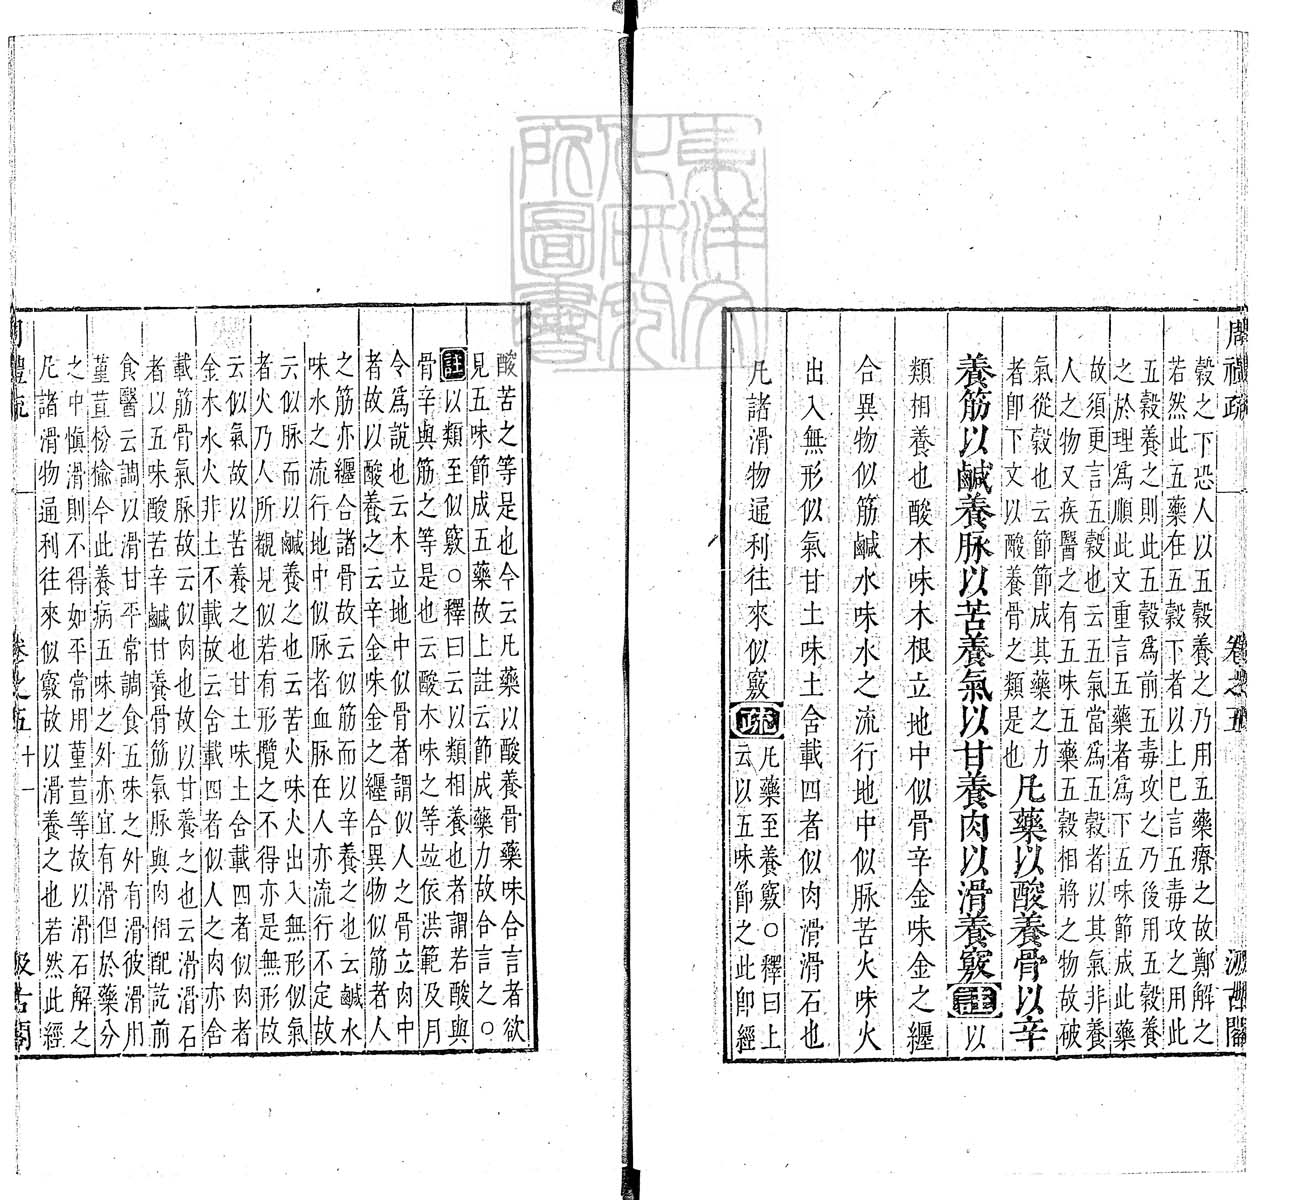 周禮疏 卷之五 汲古閣
穀之下恐人以五穀養之乃用五藥療之故鄭解之
若然此五藥在五穀下者以上已言五毒攻之用此
五穀養之則此五穀爲前五毒攻之乃後用五穀養
之於理爲順此文重言五藥者爲下五味節成此藥
故須更言五穀也云五氣當爲五穀者以其氣非養
人之物又疾醫之有五味五藥五穀相將之物故破
氣從穀也云節節成其藥之力
者卽下文以酸養骨之類是也
凡藥以酸養骨以辛
養筋以鹹養脉以苦養氣以甘養肉以滑養竅註以
類相養也酸木味木根立地中似骨辛金味金之纏
合異物似筋鹹水味水之流行地中似脉苦火味火
出入無形似氣甘土味土含載四者似肉滑滑石也
凡諸滑物通利往來似竅疏
凡藥至養竅○釋曰上
云以五味節之此卽經
酸苦之等是也今云凡藥以酸養骨藥味合言者欲
見五味節成五藥故上註云節成藥力故合言之○
註以類至似竅○釋曰云以類相養也者謂若酸與
骨辛與筋之等是也云酸木味之等竝依洪範及月
令爲說也云木立地中似骨者謂似人之骨立肉中
者故以酸養之云辛金味金之纏合異物似筋者人
之筋亦纏合諸骨故云似筋而以辛養之也云鹹水
味水之流行地中似脉者血脉在人亦流行不定故
云似脉而以鹹養之也云苦火味火出入無形似氣
者火乃人所覩見似若有形攬之不得亦是無形故
云似氣故以苦養之也甘土味土含載四者似肉者
金木水火非土不載故云含載四者似人之肉亦含
載筋骨氣脉故云似肉也故以甘養之也云滑滑石
者以五味酸苦辛鹹甘養骨筋氣脉與肉相配訖前
食醫云調以滑甘平常調食五味之外有滑彼滑用
堇荁枌楡今此養病五味之外亦宜有滑但於藥分
之中愼滑則不得如平常用堇荁等故以滑石解之
凡諸滑物通利往來似竅故以滑養之也若然此經
周禮疏 卷之五 十一 汲古閣
東洋文化研究所圖書